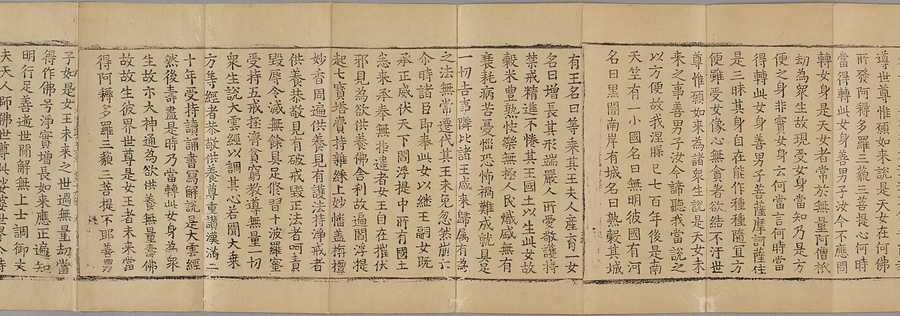 尊世尊惟願如來說是天女在何佛
所發阿耨多羅三藐三菩提心何時
當得轉此女身善男子汝今不應問
轉女身是天女者常於無量阿僧祇
劫為眾生故現受女身當知乃是方
便之身非實女身云何當言何時當
得轉此女身善男子菩薩摩訶薩住
是三昧其身自在能作種種隨宜方
便雖受女像心無貪著欲結不汙世
尊惟願如來為諸眾生說是天女未
來之事善男子汝今諦聽我當說之
以方便故我涅槃已七百年後是南
天竺有一小國名曰無明彼國有河
名曰黑闇南岸有城名曰熟穀其城
有王名曰等乘其王夫人產育一女
名曰增長其形端嚴人所愛敬護持
禁戒精進不惓其王國土以生此女故
穀米豐熟快樂無極人民熾盛無有
衰耗病苦憂惱恐怖禍難成就具足
一切吉事隣比諸王咸來歸屬有為
之法無常遷代其王未免忽然崩亡
尒時諸臣即奉此女以繼王嗣女既
承正威伏天下閻浮提中所有國土
悉來承奉無拒違者女王自在摧伏
邪見為欲供養佛舍利故遍閻浮提
起七寶塔賷持雜綵上妙幡蓋栴檀
妙香周遍供養見有護法持淨戒者
供養恭敬見有破戒毀正法者呵責
毀辱令滅無餘具足修習十波羅蜜
受持五戒拯濟貧窮教導無量一切
眾生說大雲經以調其心若聞大乘
方等經者恭敬供養尊重讚嘆滿二
十年中受持讀誦書寫解說是大雲經
然後壽盡是時乃當轉此女身為眾
生故示大神通為欲供養無量壽佛
故故生彼界世尊是女王者未來當
得阿耨多羅三藐三菩提不耶善男
子如是女王未來之世過無量劫當
得作佛号淨寶增長如來應正遍知
明行足善逝世間解無上士調御丈
夫天人師佛世尊此娑婆世界